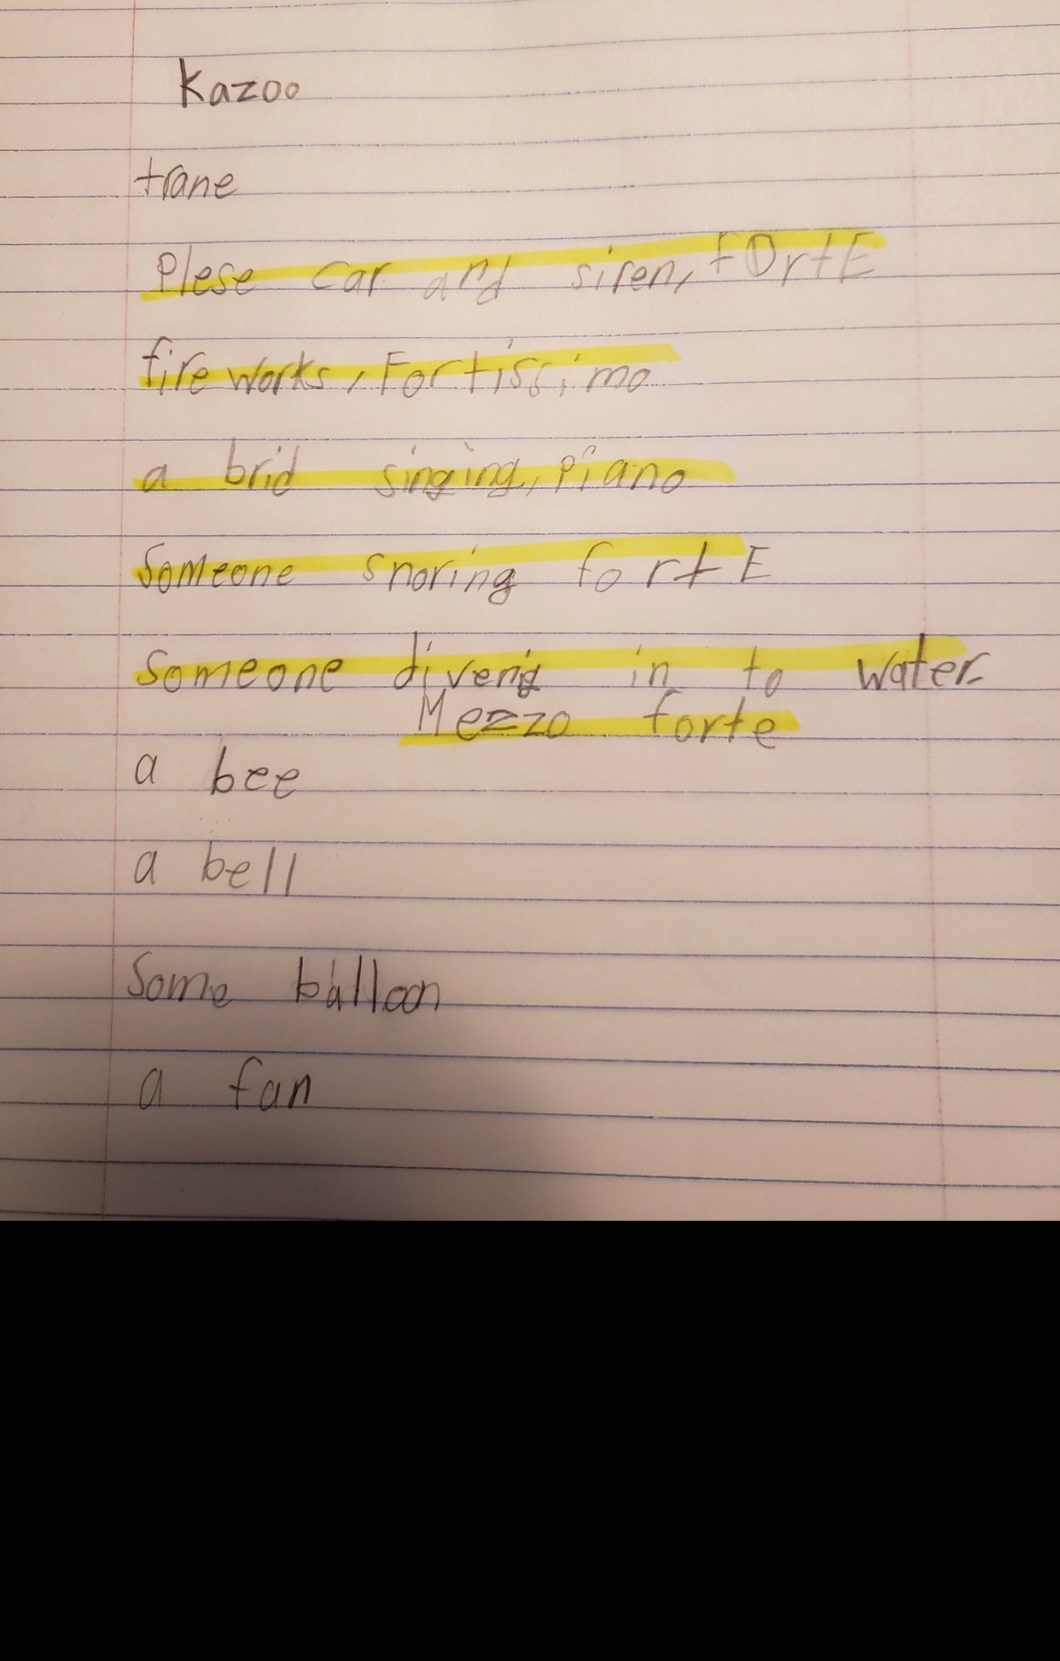 Kazoo
trane
Plese car and siren, fOrtE
fire works, Fortissimo
a brid singing, piano
Someone snoring fortE
Someone divenig in to water
Mezzo forte
a bee
a bell
Some balloon
a fan